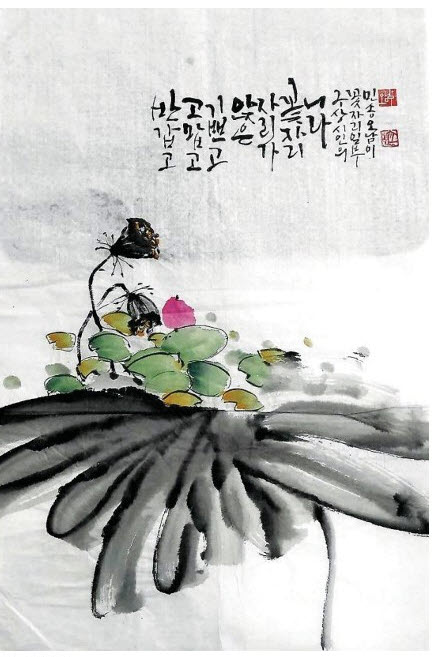 반갑고
고맙고
기쁘고
앉은
자리가
꽃자리
니라
구상시인의
꽃자리일부
민송오남이